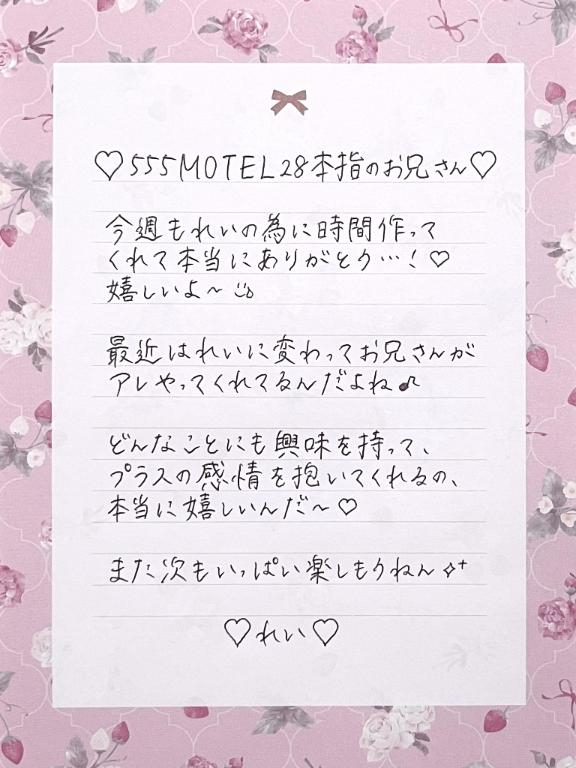 ♡555MOTEL28本指のお兄さん♡
今週もれいの為に時間作って
くれて本当にありがとう…!♡
嬉しいよ〜
最近はれいに変わってお兄さんが
アレやってくれてるんだよね♪
どんなことにも興味を持って、
プラスの感情を抱いてくれるの、
本当に嬉しいんだ〜♡
また次もいっぱい楽しもうねん✧⁺
♡れい♡